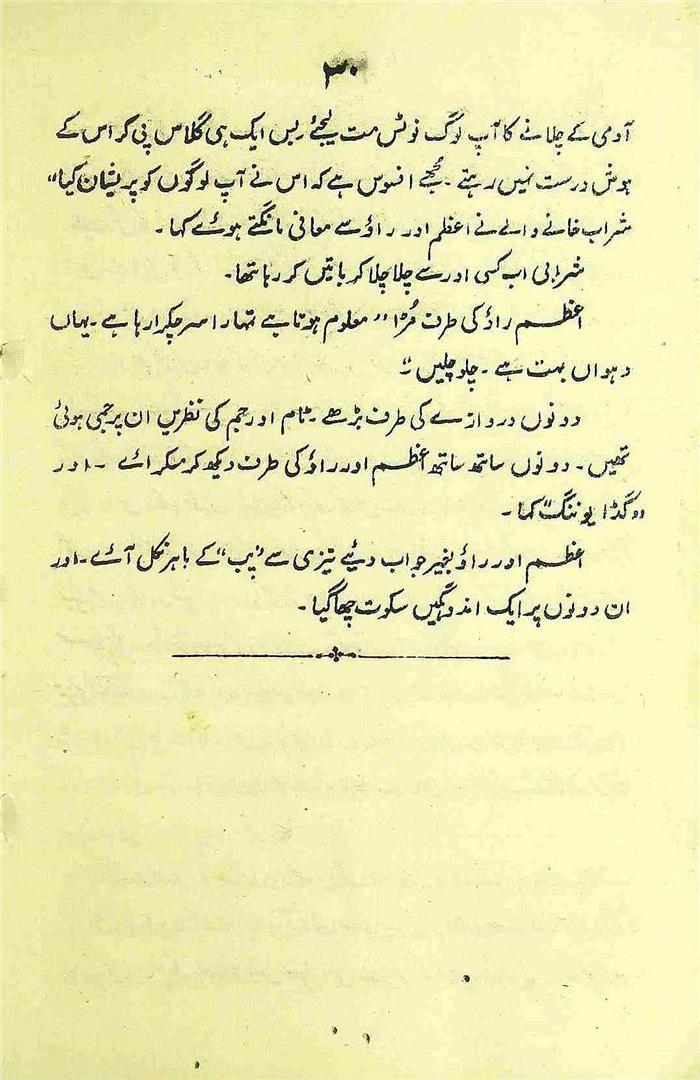 ۳۰
آدمی کے چلانے کا آپ لوگ نوٹس مت لیجئے بس ایک ہی گلاس پی کر اس کے
ہوش درست نہیں رہتے۔ مجھے افسوس ہے کہ اس نے آپ لوگوں کو پریشان کیا"
شراب خانے والے نے اعظم اور راؤ سے معافی مانگتے ہوئے کہا۔
شرابی اب کسی اور سے چلا چلا کر باتیں کر رہا تھا۔
اعظم راؤ کی طرف مُڑا "معلوم ہوتا ہے تمہارا سر چکرا رہا ہے۔ یہاں
دہواں بہت ہے۔ چلو چلیں"۔
دونوں دروازے کی طرف بڑھے۔ ٹام اور جم کی نظریں ان پر جمی ہوئی
تھیں۔ دونوں ساتھ ساتھ اعظم اور راؤ کی طرف دیکھ کر مسکرائے۔ اور
"گڈ ایوننگ" کہا۔
اعظم اور راؤ بغیر جواب دئیے تیزی سے "پب" کے باہر نکل آئے۔ اور
ان دونوں پر ایک اندوہگیں سکوت چھا گیا۔